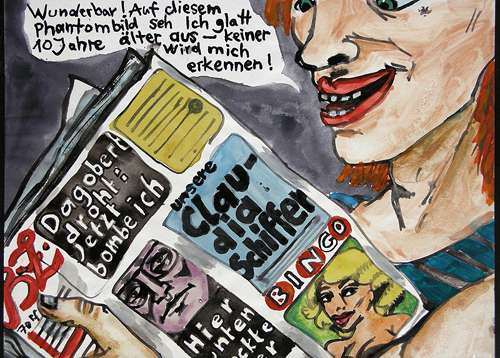 Wunderbar! Auf diesem
Phantombild seh Ich glatt
10 Jahre älter aus – keiner
wird mich
erkennen!
Dagobert
droht:
jetzt
bombe ich
unsere
Clau-
dia
Schiffer
BINGO
B.Z.
70 Pf
Hier
unten